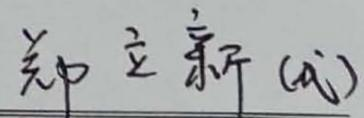 郑立新(代)